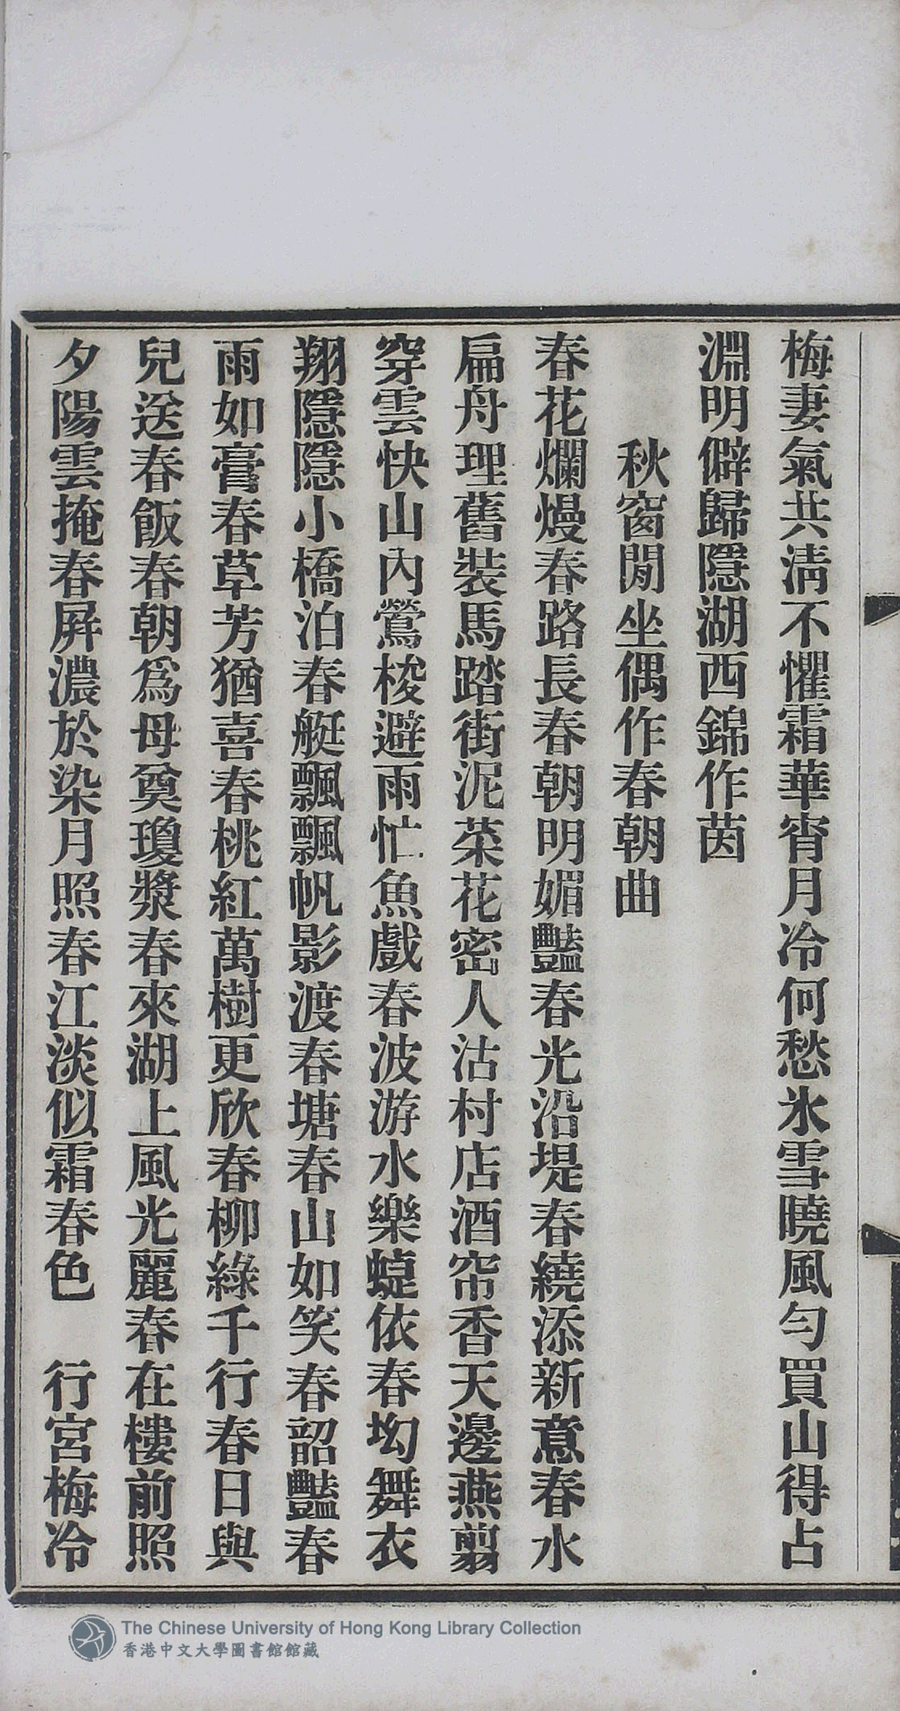 梅妻氣共清不懼霜華宵月冷何愁氷雪曉風勻買山得占
淵明僻歸隱湖西錦作茵
秋窗閒坐偶作春朝曲
春花爛熳春路長春朝明媚豔春光沿堤春繞添新意春水
扁舟理舊裝馬踏街泥菜花密人沽村店酒帘香天邊燕翦
穿雲快山內鶯梭避雨忙魚戲春波游水樂蜨依春㘭舞衣
翔隱隱小橋泊春艇飄飄帆影渡春塘春山如笑春韶豔春
雨如膏春草芳猶喜春桃紅萬樹更欣春柳綠千行春日與
兒送春飯春朝爲母奠瓊漿春來湖上風光麗春在樓前照
夕陽雲掩春屏濃於染月照春江淡似霜春色　行宮梅冷
The Chinese University of Hong Kong Library Collection
香港中文大學圖書館館藏